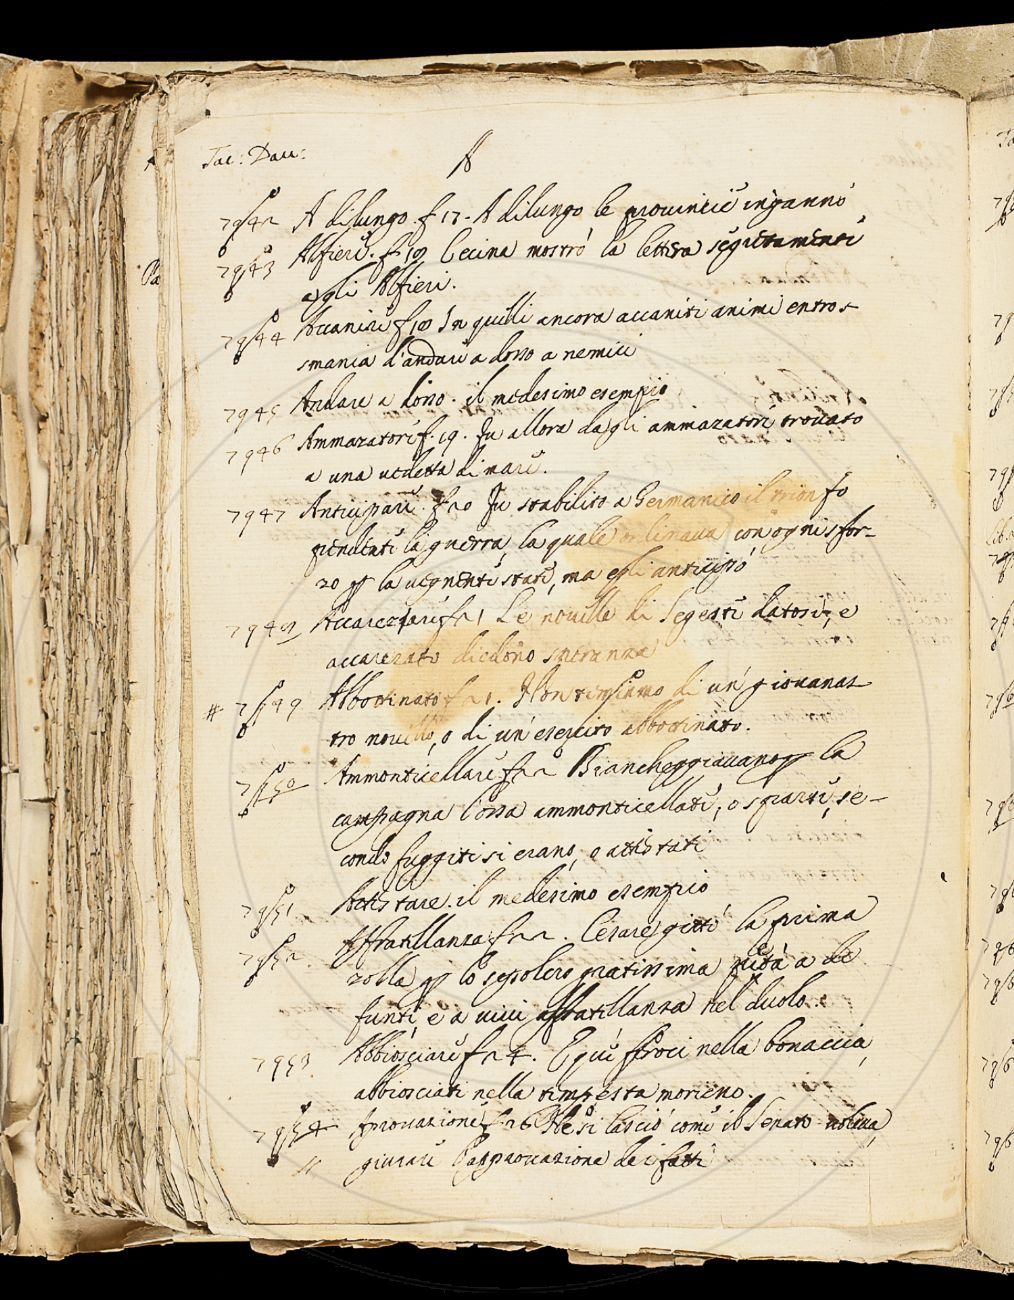 Tac: Dau:
A
7942 A dilungo f. 17. A dilungo le provincie ingannò
7943 Alfieri. f. 18 Cecina mostrò la lettera segretamente
agli Alfieri.
7944 Accanire f. 18 In quelli ancora accaniti animi entro
smania d'andare a dosso a nemici
7945 Andare a dosso. il medesimo esempio
7946 Ammazatori f. 19. Fu allora dagli ammazatori trovato
a una vedetta di mare.
7947 Anticipare. f. 20 Fu stabilito a Germanico il trionfo
pendente la guerra, la quale ordinava con ogni sfor-
zo p la vegnente state, ma egli anticipò
7948 Accarezzare f. 21 Le novelle di Segeste datosi, e
accarezzato diedono speranza
# 7949 Abbottinato f. 21. Non temiamo di un giovanas
tro novello, o di un esercito abbottinato.
7950 Ammonticellare f. 22 Biancheggiavano p la
campagna l'ossa ammonticellate, o sparte, se-
condo fuggiti si erano, o attestati
7951 Attestare. il medesimo esempio
7952 Affratellanza f. 22. Cesare gittò la prima
zolla p lo sepolcro gratissima pietà a de
funti, e a vivi affratellanza nel duolo.
7953 Abbiosciare f. 24. E qui feroci nella bonaccia,
abbiosciati nella tempesta morieno.
7954 Approvazione f. 26 Ne si lasciò come il Senato voleva,
giurare l'approvazione de i fatti